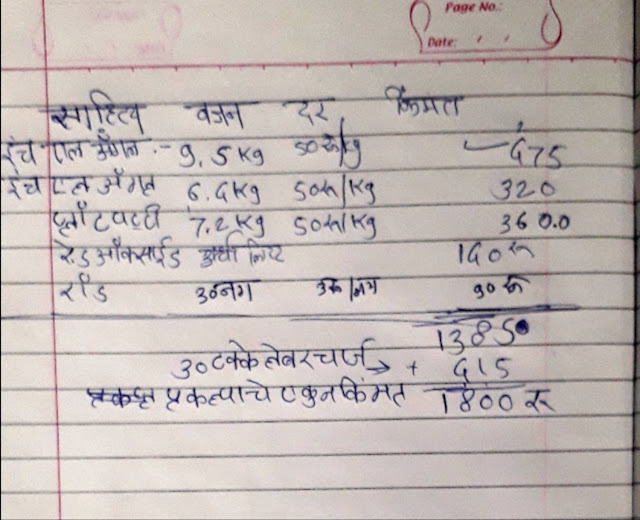 Page No.:
Date:
साहित्य वजन दर किंमत
इंच एल अँगल :- 9.5 Kg 50रू/kg 475
इंच एल अँगल 6.4Kg 50रू/Kg 320
प्लॉटपट्टी 7.2Kg 50रू/Kg 360.0
रेड ऑक्साईड अर्धा लिटर 140रू
रॉड 30नग 3रू/नग 90रू
1385
30टक्के लेबरचार्ज → + 415
प्रकल्पाचे एकुन किंमत 1800रू